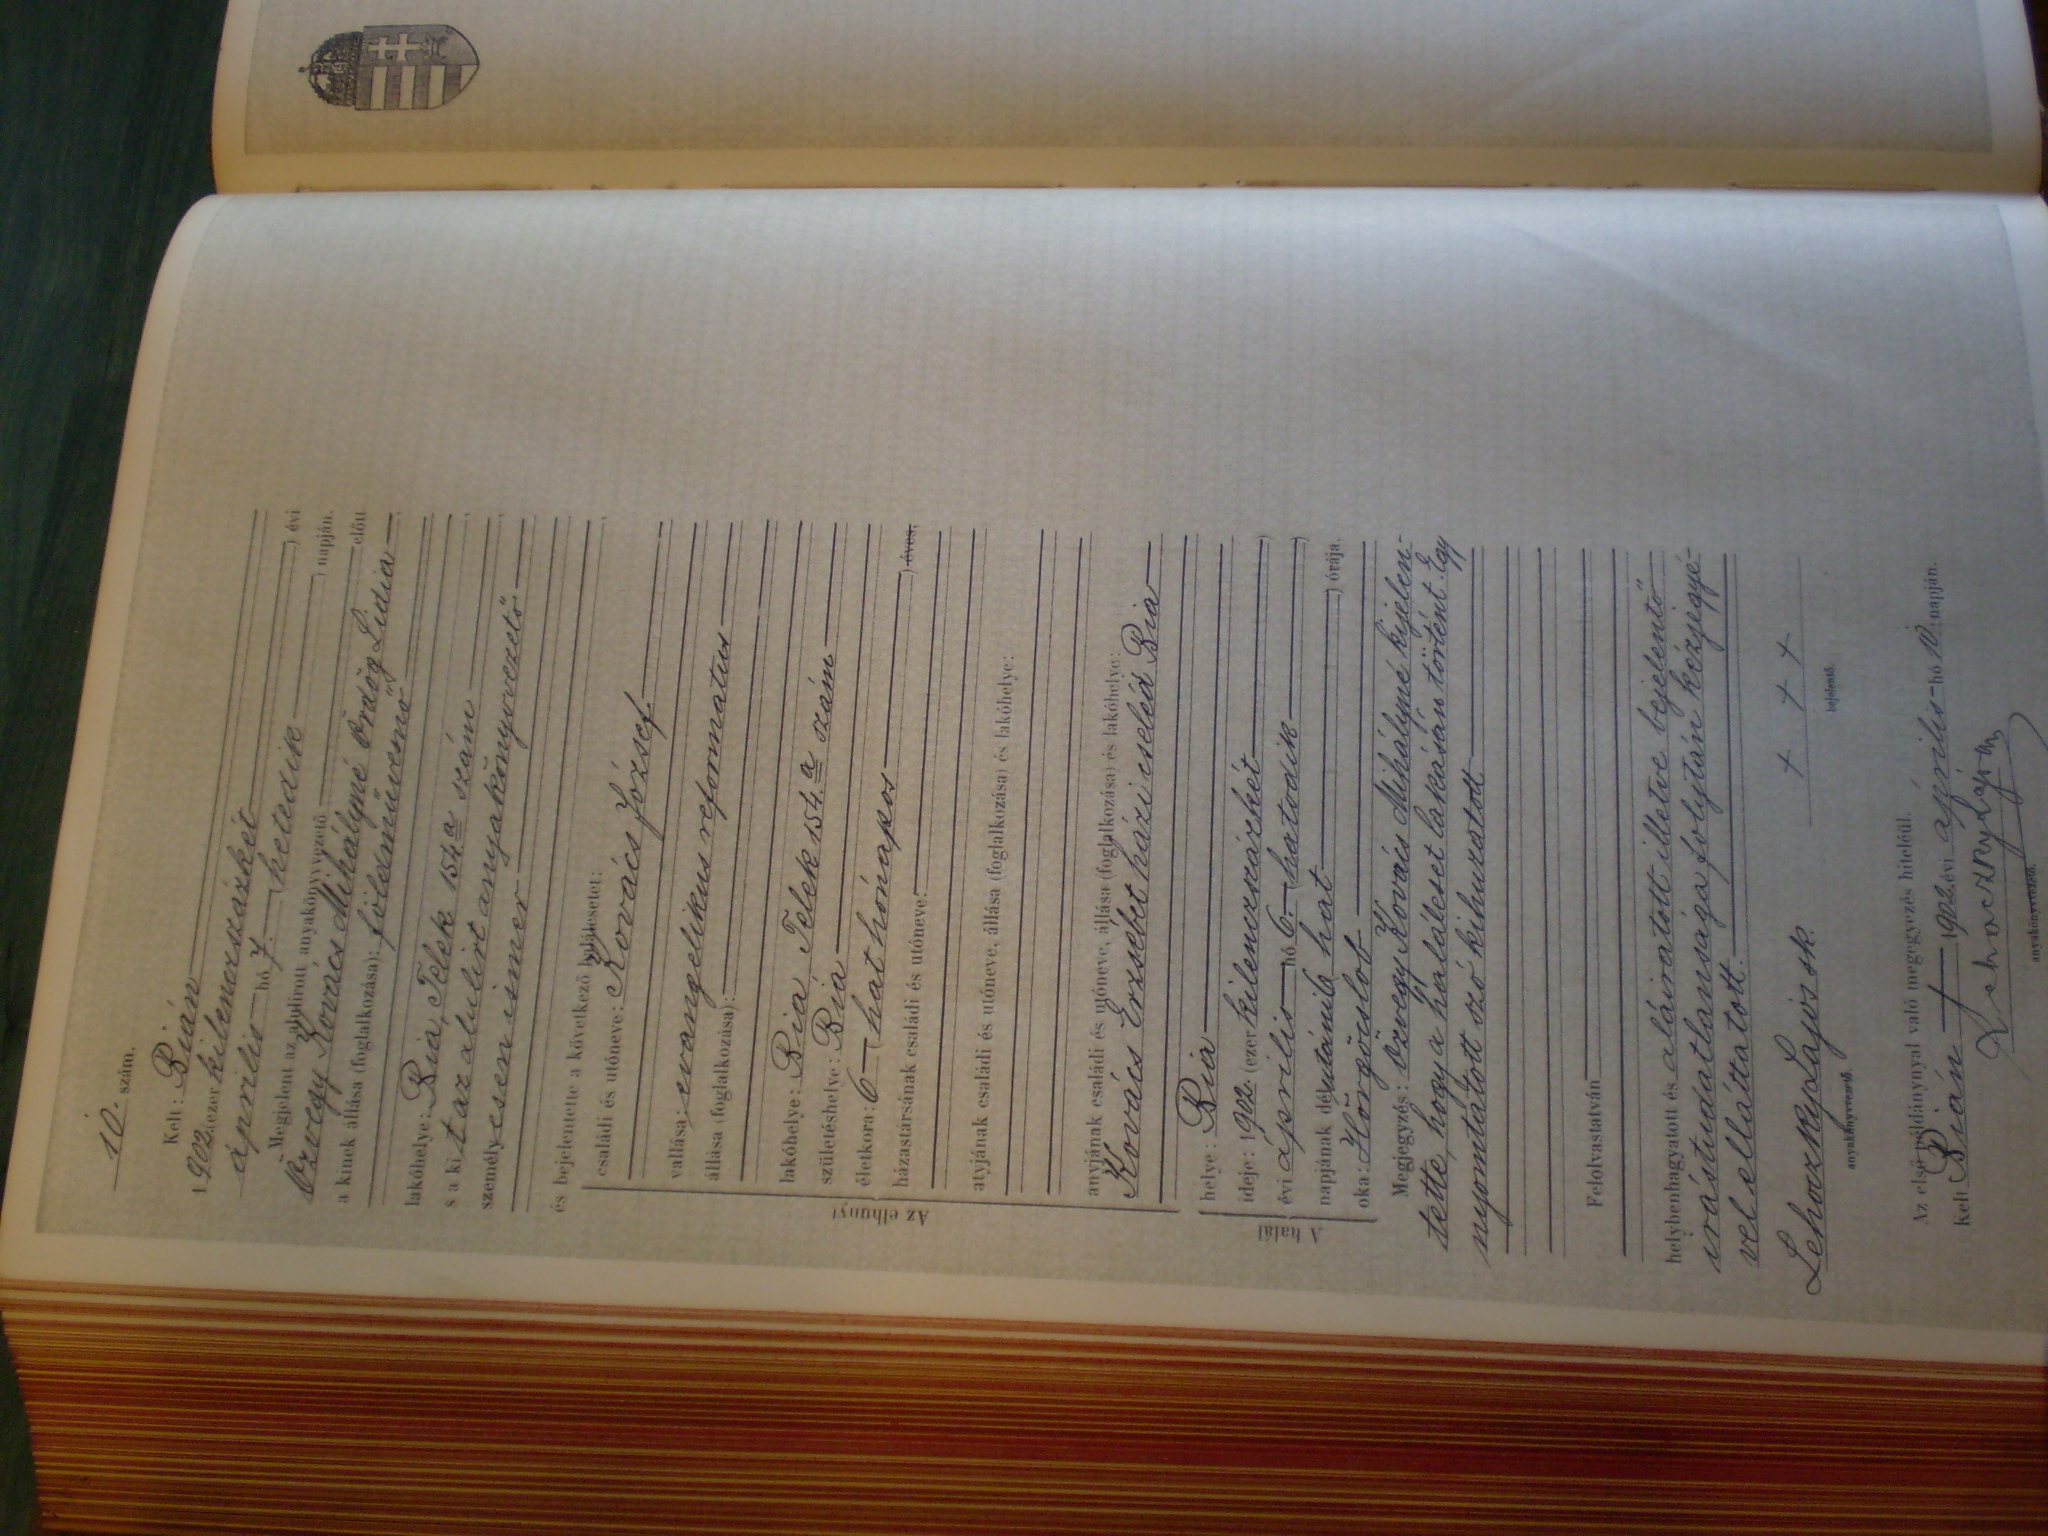 10. szám.
Kelt: Bián
1902. (ezer kilenczszázkét
április hó 7. (hetedik ) évi
) napján.
Megjelent az alulirott anyakönyvvezető előtt
Özvegy Kovács Mihályné Ördög Lidia
a kinek állása (foglalkozása): földmüvesnő
lakóhelye: Bia, Telek 154.a szám
s a kit az alulirt anyakönyvvezető
személyesen ismer
és bejelentette a következő halálesetet:
családi és utóneve: Kovács József
vallása: evangelikus reformatus
állása (foglalkozása):
lakóhelye: Bia Telek 154.a szám
születéshelye: Bia
életkora: 6 (hat hónapos ) éves,
házastársának családi és utóneve:
atyjának családi és utóneve, állása (foglalkozása) és lakóhelye:
anyjának családi és utóneve, állása (foglalkozása) és lakóhelye:
Kovács Erzsébet házi cseléd Bia
Az elhunyt
helye: Bia
ideje: 1902. (ezer kilenczszázkét )
évi április hó 6. (hatodik )
napjának délutánila hat ) órája.
oka: Hörgőslob
A halál
Megjegyzés: özvegy Kovács Mihályné kijelen-
tette, hogy a haláleset lakásán történt. Egy
nyomtatott szó kihuzatott
Felolvastatván
helybenhagyatott és aláiratott illetve bejelentő
irástudatlansága folytán kézjegyé-
vel elláttatott.
Lehoczky Lajos sk. + + +
anyakönyvvezető. bejelentő.
Az első példánynyal való megegyezés hiteléül.
Kelt Bián 1902. évi április hó 10 napján.
Lehoczky Lajos
anyakönyvvezető.